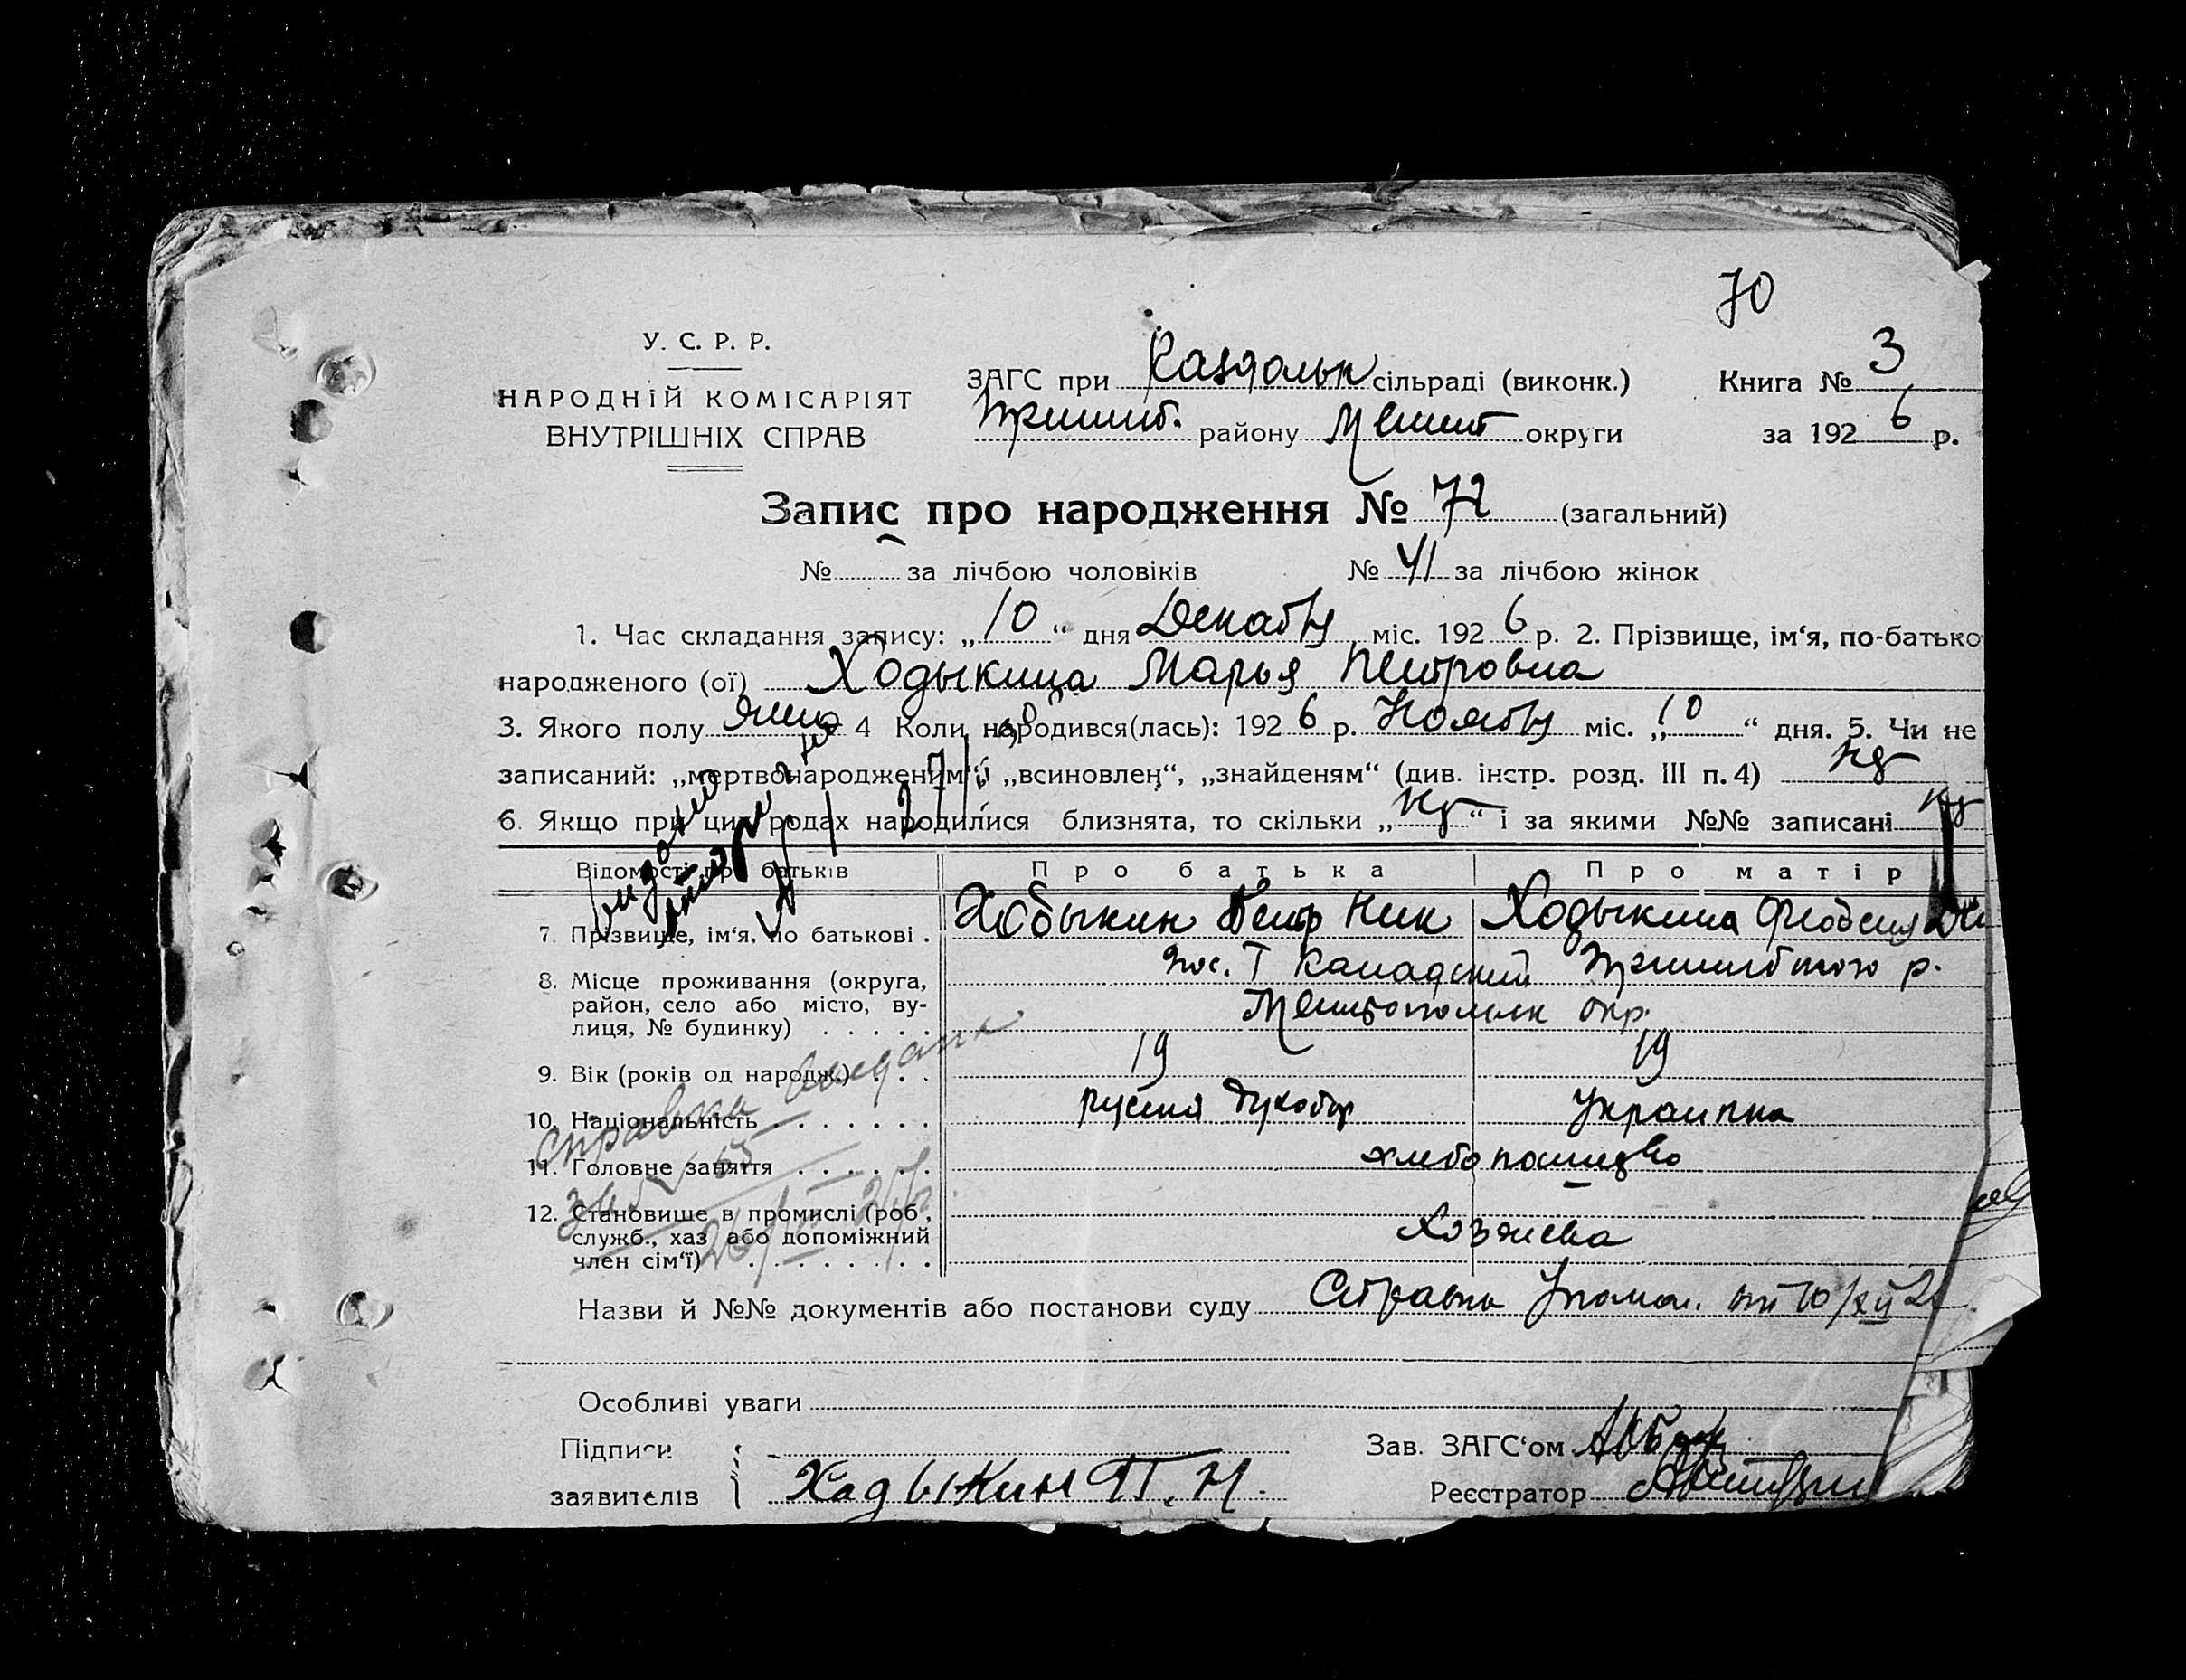 70
У. С. Р. Р.
НАРОДНІЙ КОМІСАРІЯТ
ВНУТРІШНІХ СПРАВ
ЗАГС при сільраді (виконк.)
Пришиб. району Мелит округи
Книга № 3
за 1926 р.
Запис про народження № 72 (загальний)
№ за лічбою чоловіків № 41 за лічбою жінок
1. Час складання запису: „10“ дня Декабр міс. 1926 р. 2. Прізвище, ім‘я, по-батько
народженого (ої) Ходыкина Марья Петровна
3. Якого полу 4 Коли народився(лась): 1926 р. Ноябр міс. „10“ дня. 5. Чи не
записаний: „мертвонародженим“, „всиновлен“, „знайденям“ (див. інстр. розд. III п. 4)
6. Якщо при цих родах народилися близнята, то скільки „ “ і за якими №№ записані
Відомості про батьків Про батька Про матір
7. Прізвище, ім‘я, по батькові . Ходыкин Петр Ник Ходыкина Феодосия
8. Місце проживання (округа, район, село або місто, вулиця, № будинку) пос. I Канадский Пришибского р.
Мелитопольск окр.
9. Вік (років од народж.) . . . 19 19
10. Національність русский Духобор Украинка
11. Головне заняття хлебопашество
12. Становище в промислі (роб., служб., хаз. або допоміжний член сім‘ї) Хозяева
Справка выдана
Назви й №№ документів або постанови суду Справка от 10/XII 2
Особливі уваги
Підписи
заявителів Хадыкин П. Н.
Зав. ЗАГС‘ом
Реєстратор